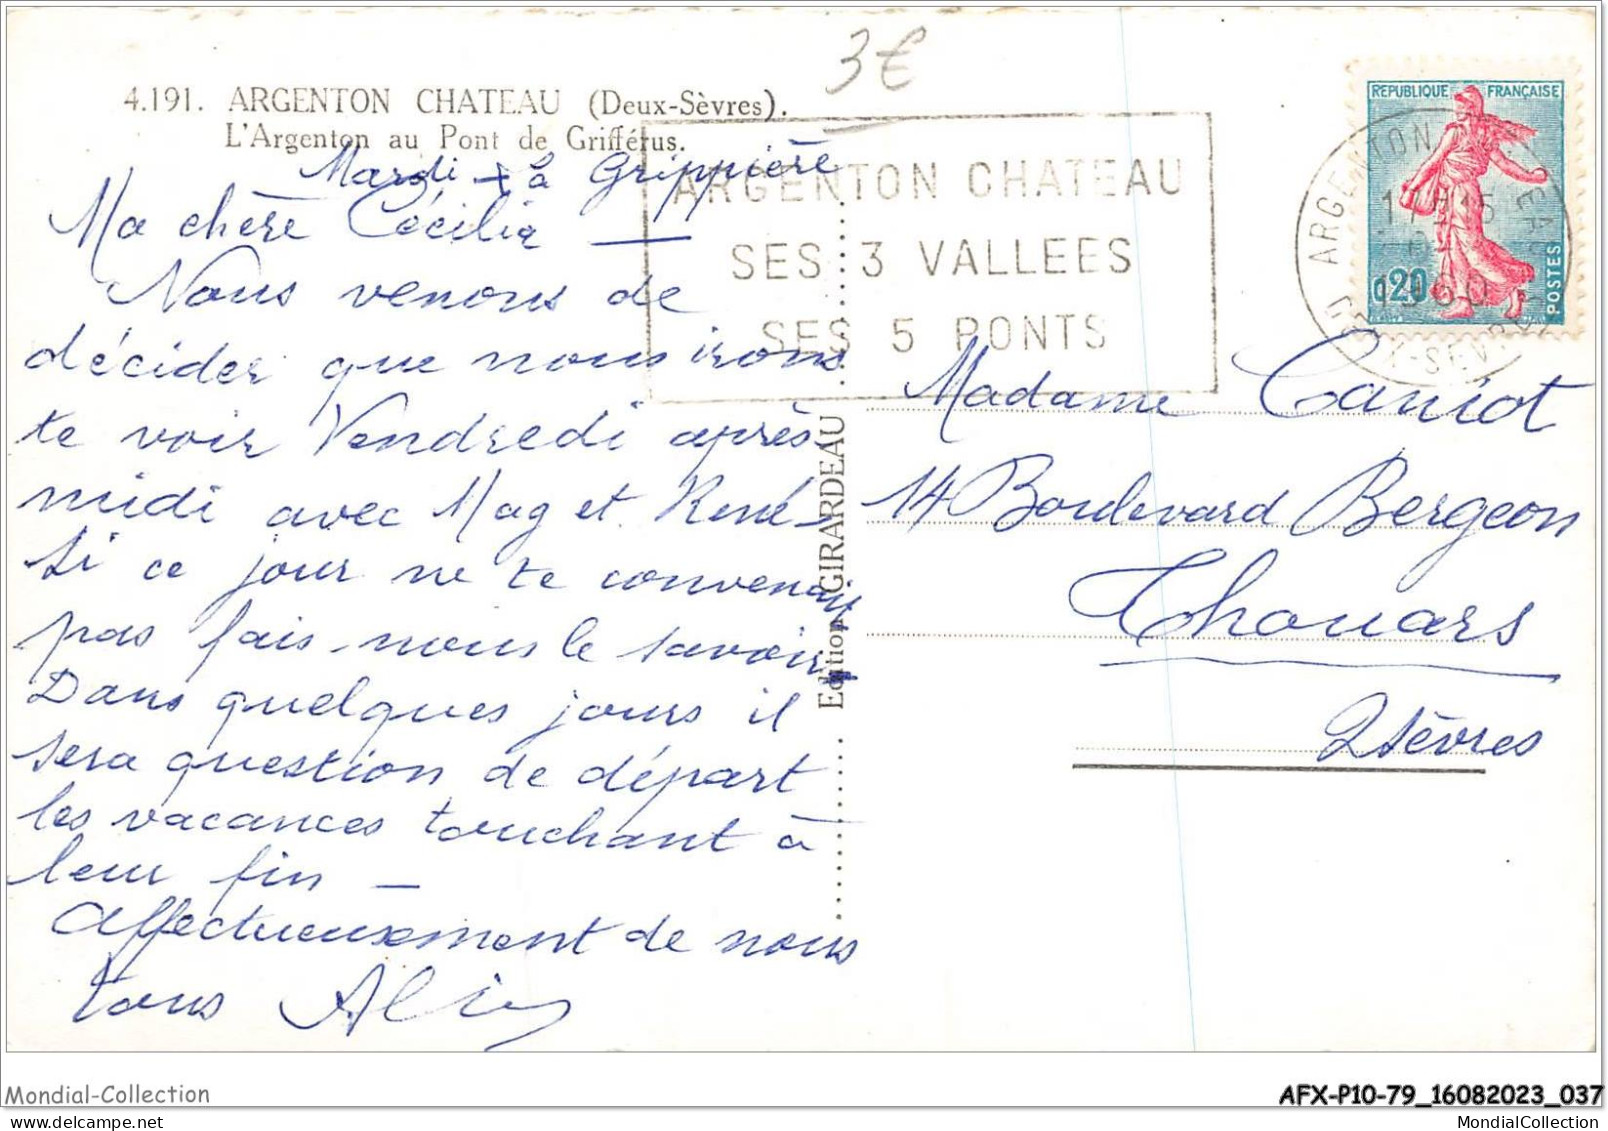 3€
4.191. ARGENTON CHATEAU (Deux-Sèvres).
L'Argenton au Pont de Grifférus.
Mardi à la Grippière
Ma chère Cécilia —
Nous venons de
décider que nous irons
te voir Vendredi après-
midi avec Mag et René.
Si ce jour ne te convenait
pas fais-nous le savoir.
Dans quelques jours il
sera question de départ
les vacances touchant à
leur fin —
Affectueusement de nous
tous
Edition GIRARDEAU
ARGENTON CHATEAU
SES 3 VALLEES
SES 5 PONTS
REPUBLIQUE FRANÇAISE
0,20
POSTES
ARGENTON CHATEAU
1960
Madame Caniot
14 Boulevard Bergeon
Thouars
2 Sèvres
Mondial-Collection
AFX-P10-79_16082023_037
MondialCollection